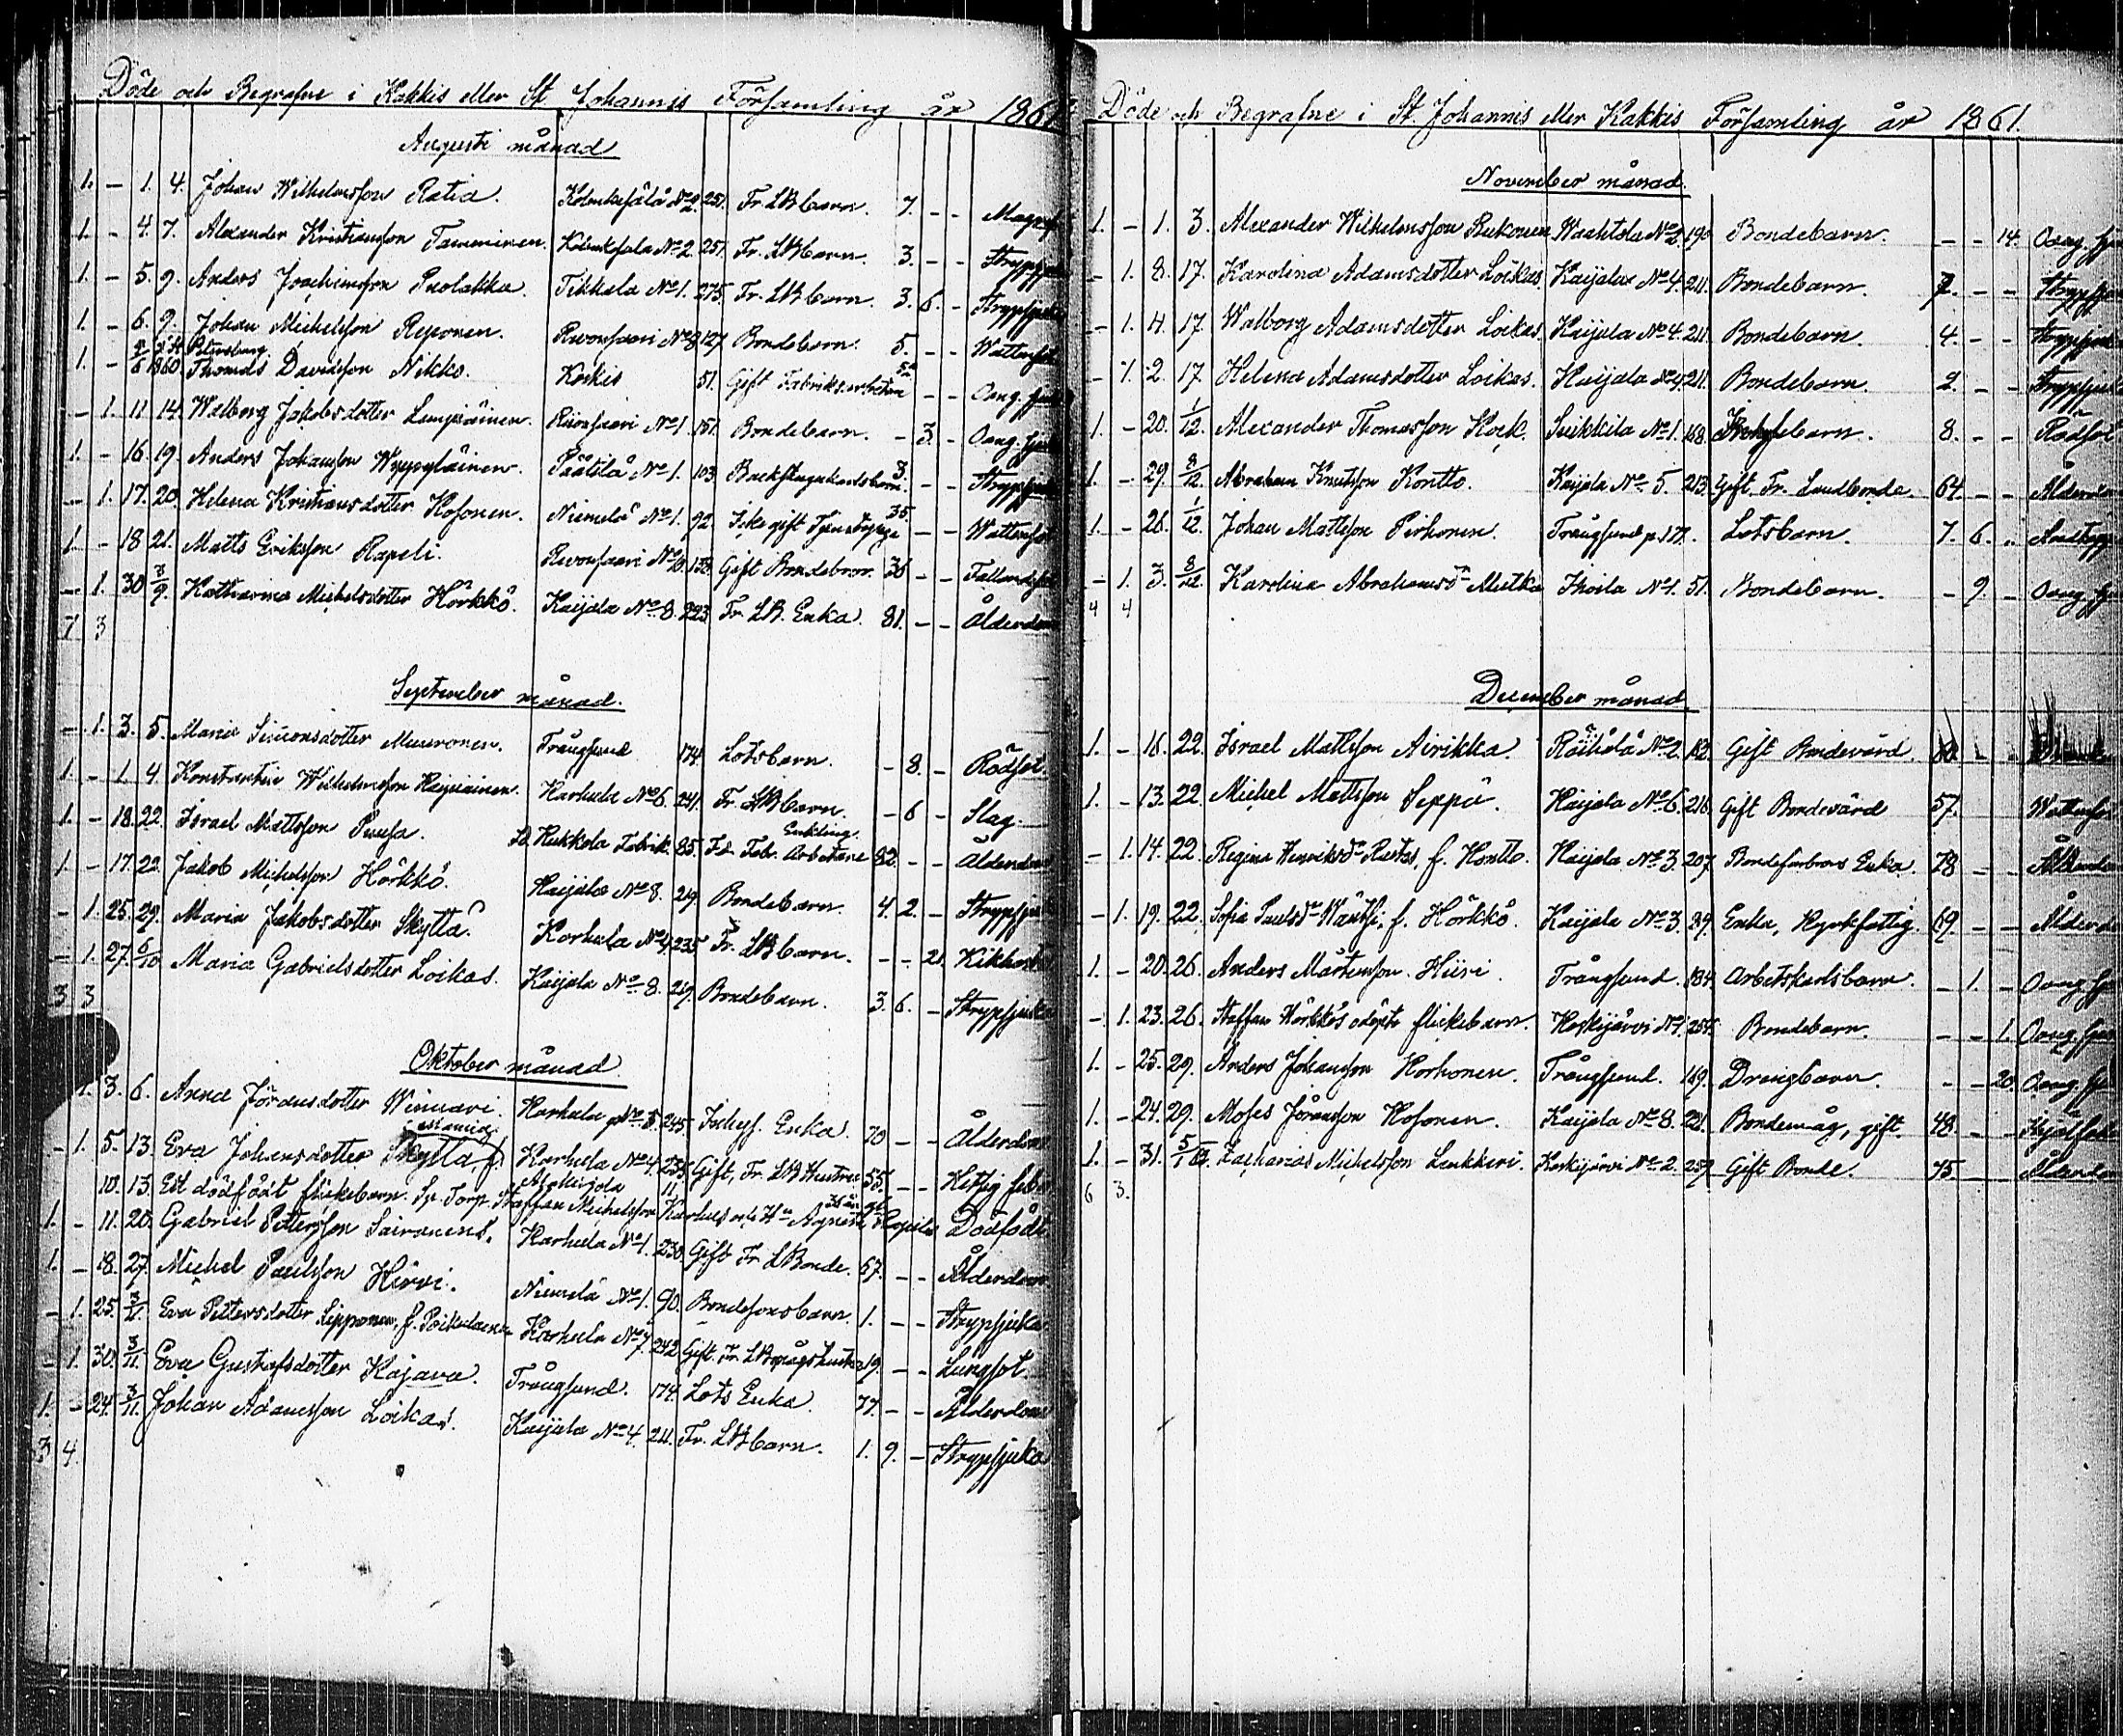 Döde och Begrafne i Kakkis eller St Johannis Församling år 1861
Augusti månad
1. – 1. 4. Johan Wilhelmsson Ratia. Kolmikesälä No 2. 251. Fr. LB barn. 7. – –
1. – 4. 7. Alexander Kristiansson Tamminen. No 2. 251. Fr. LB barn. 3. – – Strypsju
1. – 5. 9. Anders Joachimsson Puolakka. Tikkala No 1. 275. Fr. LB barn. 3. 6. – Strypsju
1. – 6. 9. Johan Michelsson Reponen. Revonsaari No 8 127 Bondebarn. 5. – – Wattensot
1. – 1860 Petersburg Thomas Davidsson Nikko. Koskis 51. Gift Fabriksarbetare – – Oang. sju
– 1. 11 14. Walborg Jakobsdotter Lempiäinen. Revonsaari No 1. 151. Bondebarn. – 3. – Oang. sju
1. – 16. 19. Anders Johansson Wyyryläinen. Päätilä No 1. 103. 3. – – Strypsju
– 1. 17. 20. Helena Kristiansdotter Kosonen. Niemelä No 1. 92. Icke gift 35. – – Wattensot
1. – 18 21. Matts Eriksson Rapeli. Revonsaari No 10. 132. Gift Bondebror. 36 – – Fallandesot
– 1. 30 3/9. Katharina Michelsdotter Hörkkö. Kaijala No 8. 223 Fr. LB. Enka. 81. – – Ålderdom
7 3
September månad.
– 1. 3. 5. Maria Simonsdotter Muuronen. Trångsund 174. Lotsbarn. – 8. – Rödsot.
1. – 1. 4. Konstantin Wilhelmsson Karhula No 6. 241. Fr. LB barn. – 6 – Slag.
1. – 18. 22. Israel Mattsson Puusa. Rukkola Fabrik. 85. Fd. Fabr. Arbetare Enkling. 82. – – Ålderdom
1. – 17. 22. Jakob Michelsson Hörkkö. Kaijala No 8. 219 Bondebarn. 4. 2. – Strypsju
– 1. 25. 29. Maria Jakobsdotter Skyttä. Karhula No 4. 235 Fr. LB barn. – – 21. Kikhosta
– 1. 27. 6/10 Maria Gabrielsdotter Loikas. Kaijala No 8. 219. Bondebarn. 3. 6. – Strypsjuka
3 3
Oktober månad.
1. 3. 6. Anna Jöransdotter Winnari. Karhula No 5. 245. Inhys. Enka. 70 – – Ålderdom
– 1. 5. 13. Eva Johansdotter Skyttä, f. Karhula No 4. 235. Gift, Fr. LB Hustru 55. – – Hetsig feber
10. 13. Ett dödfödt flickebarn. Sp. Torp. Staffan Michelsson Karhus och Hn Agneta Dödfödt
1. – 11. 20. Gabriel Pettersson Sairanens. Karhula No 1. 230. Gift Fr LBonde. 67. – – Ålderdom
1. – 18. 27. Michel Paulsson Hirvi. Niemelä No 1. 90. Bondesonsbarn 1. – – Strypsjuka
– 1. 25. 3/11. Eva Pettersdotter Lipponen, f. Karhula No 7. 242 Gift. Fr. LB mågs hustru 19. – – Lungsot.
– 1. 30. 3/11. Eva Gustafsdotter Kajava. Trångsund. 174. Lots Enka 77. – – Ålderdom
1. – 24. 3/11. Johan Adamsson Loikas. Kaijala No 4. 211. Fr. LB barn. 1. 9. – Strypsjuka
3 4.
Döde och Begrafne i St. Johannis eller Kakkis Församling år 1861.
November månad.
1. – 1. 3. Alexander Wilhelmsson Rukonen Waahtola No 2. 190 Bondebarn. – – 14. Oang. sju
– 1. 8. 17. Karolina Adamsdotter Loikas Kaijala No 4. 211. Bondebarn. 7. – – Strypsju
– 1. 11. 17. Walborg Adamsdotter Loikas Kaijala No 4. 211. Bondebarn. 4. – – Strypsju
– 1. 2. 17. Helena Adamsdotter Loikas. Kaijala No 4. 211. Bondebarn. 2. – – Strypsju
1. – 20. 1/12. Alexander Thomasson Kock. Suikkila No 1. 168. 8. – – Rödsot
1. – 29. 8/12. Abraham Knutsson Kontto. Kaijala No 5. 213. Gift. Fr. Landbonde. 64. – – Ålderdom
1. – 26. 1/12. Johan Mattsson Pirhonen. Trångsund p. 177. Lotsbarn. 7. 6. –
– 1. 3. 8/12. Karolina Abrahamsdr Mutka Ihoila No 1. 51. Bondebarn. – 9. – Oang. sju
4 4
December månad.
1. – 16. 22. Israel Mattsson Airikka. Räihälä No 2. 182. Gift Bondevärd. – –
1. – 13. 22. Michel Mattsson Seppä. Kaijala No 6. 216. Gift Bondevärd 57. Wattensot
– 1. 14. 22. Regina Henriksdr Rastas, f. Kontto. Kaijala No 3. 207. Bondefarbrors Enka. 78 – – Ålderdom
– 1. 19. 22. Sofia Paulsdr f. Hörkkö. Kaijala No 3. 89. Enka, Kyrkfattig. 69. – – Ålderdom
1. – 20. 26. Anders Mårtensson Hiiri Trångsund. 184. Arbetskarlsbarn. – 1. – Oang. sju
– 1. 23. 26. Staffan Hörkkös odöpte flickebarn. Koskijärvi No 1. 254. Bondebarn. – – 1. Oang. sju
1. – 25. 29. Anders Johansson Korhonen. Trångsund. 169. Drengbarn. – – 20. Oang. sju
1. – 24. 29. Moses Jöransson Kosonen. Kaijala No 8. 221. Bondemåg, gift. 48. – –
1. – 31. 5/1 62. Zacharias Michelsson Leukkeri. Koskijärvi No 2. 259. Gift Bonde. 75. – – Ålderdom
6 3.